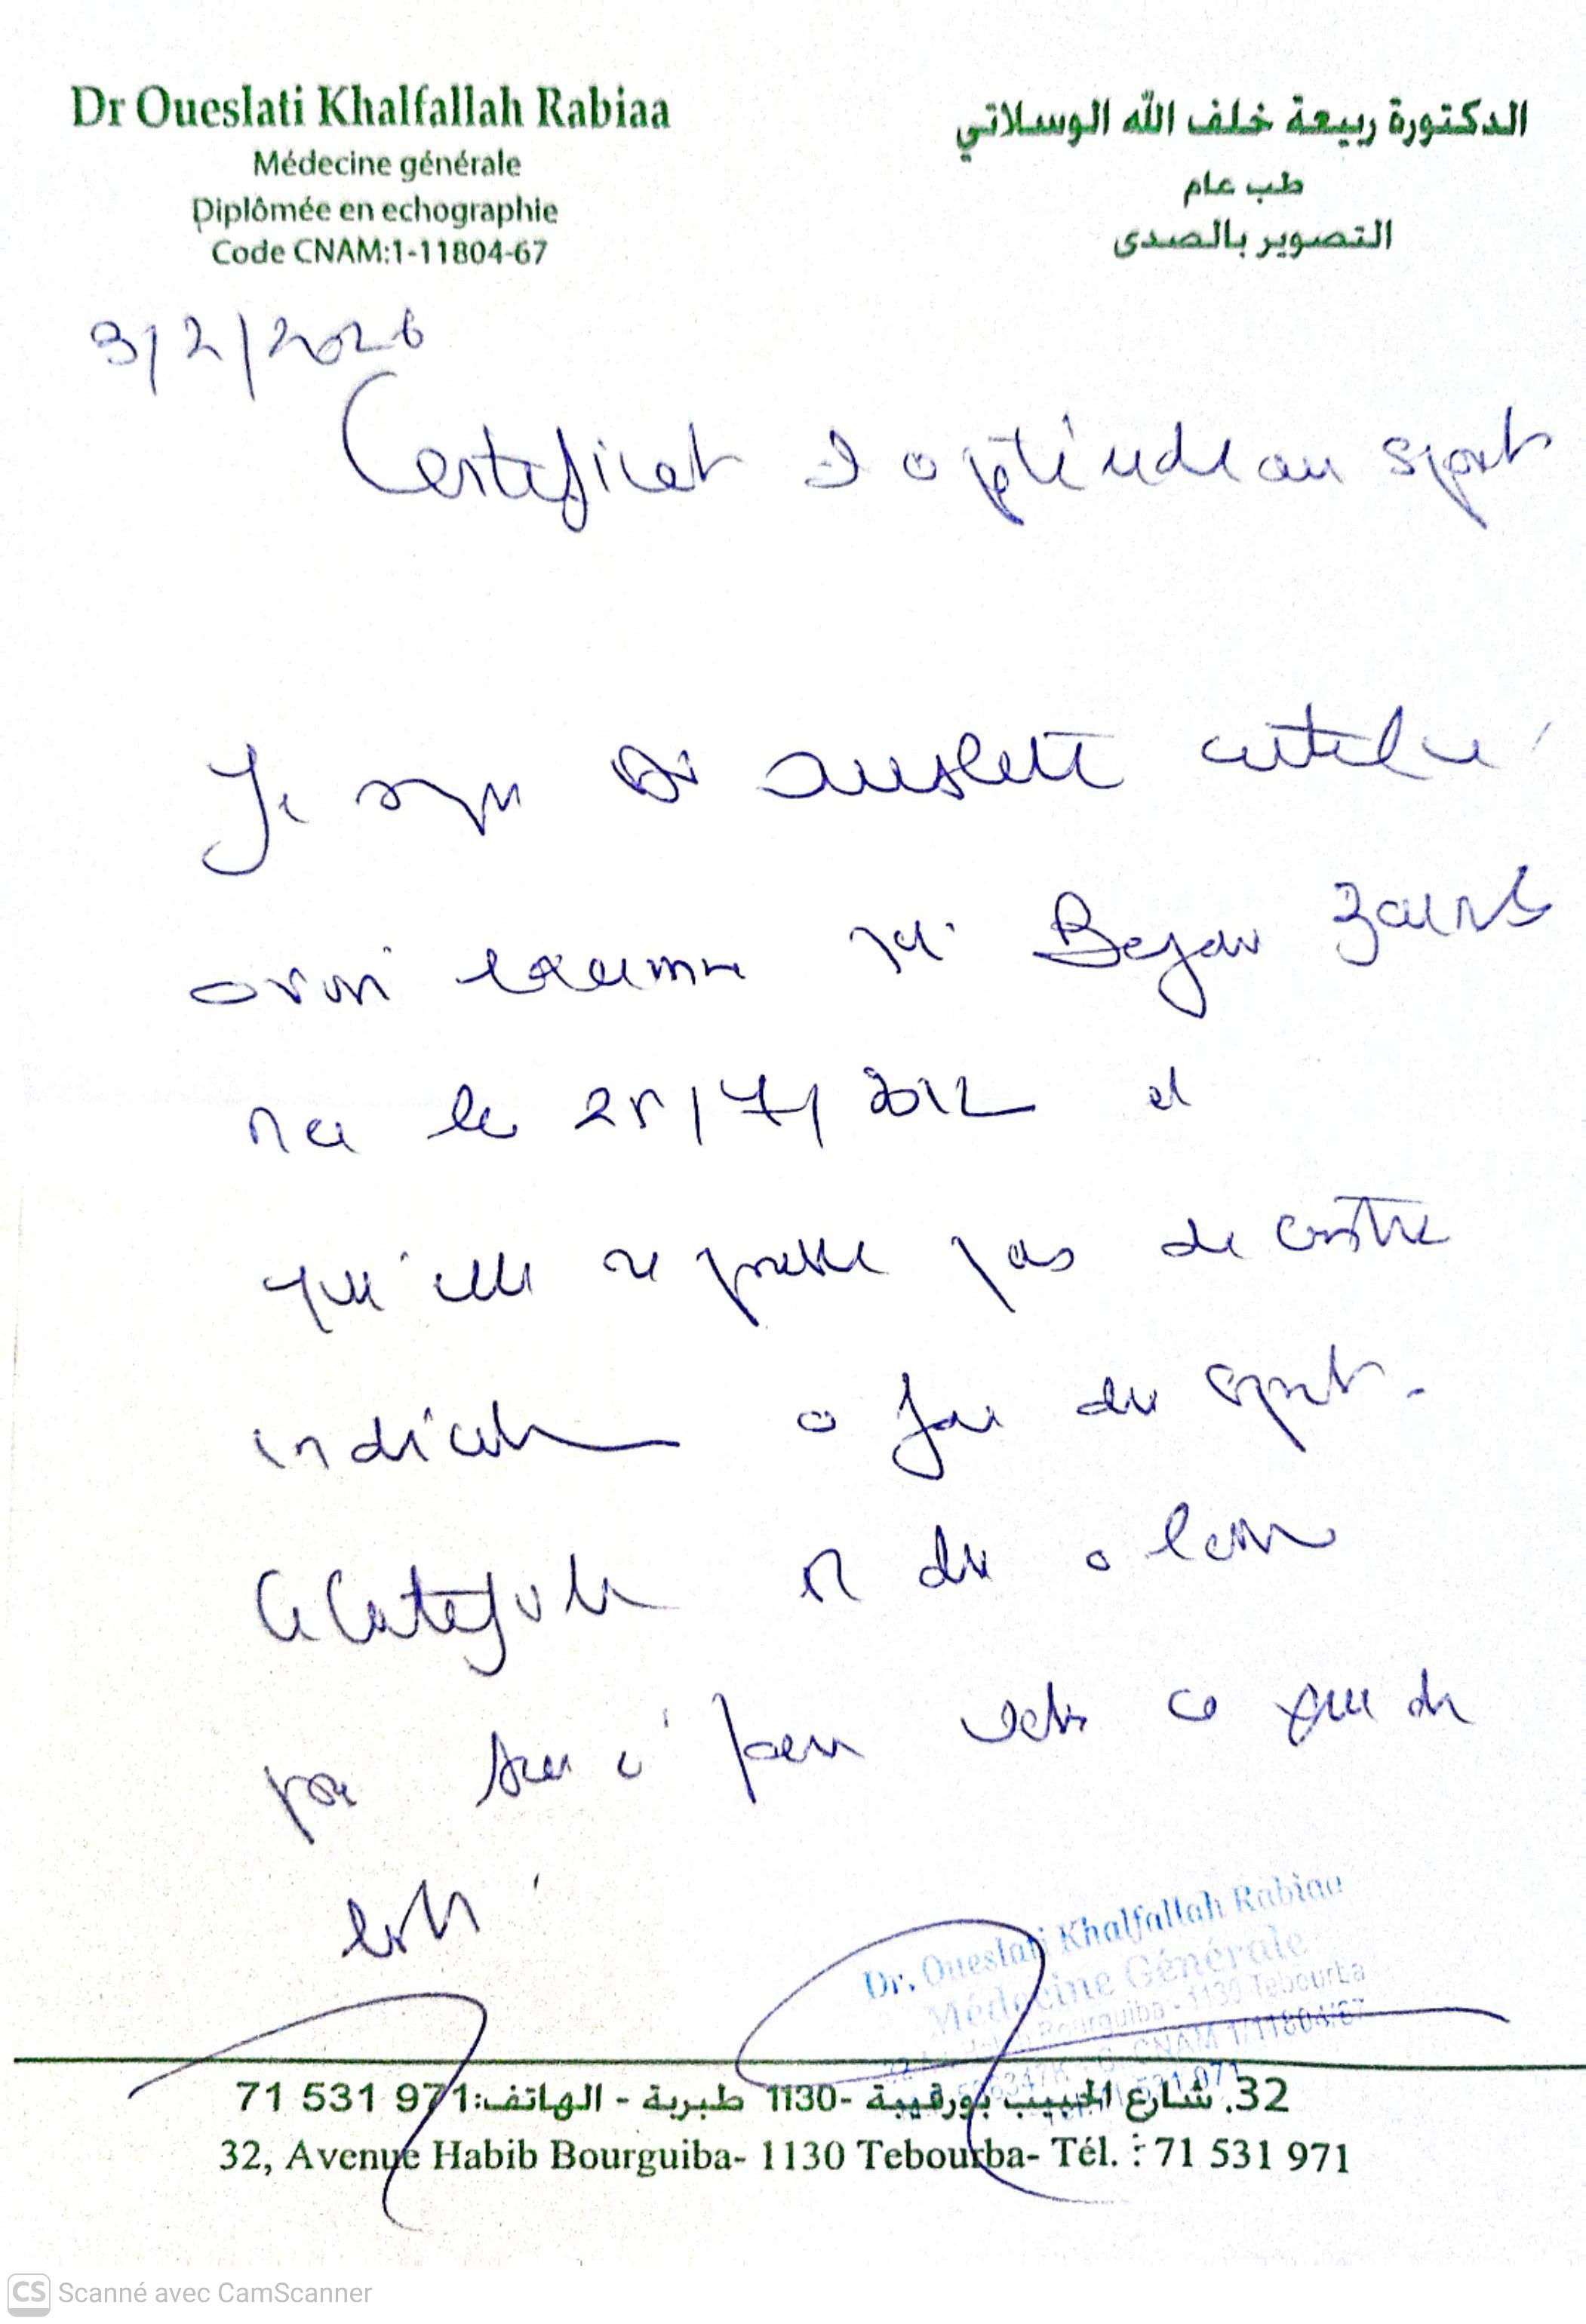 Dr Oueslati Khalfallah Rabiaa
Médecine générale
Diplômée en echographie
Code CNAM:1-11804-67
الدكتورة ربيعة خلف الله الوسلاتي
طب عام
التصوير بالصدى
3/2/2026
Certificat d'aptitude au sport
Je Dr Oueslati certifie
avoir examiné Bejar Zaineb
née le 25/7/2012 et
qu'elle ne pas de contre
indication a faire du sport.
Ce Certificat
pour ce que de
droit
Dr. Oueslati Khalfallah Rabiaa
Médecine Générale
Bourguiba - 1130 Tebourba
CNAM 1/11804/67
32. شارع الحبيب بورقيبة -1130 طبربة - الهاتف:71 531 971
32, Avenue Habib Bourguiba- 1130 Tebourba- Tél. : 71 531 971
CS Scanné avec CamScanner